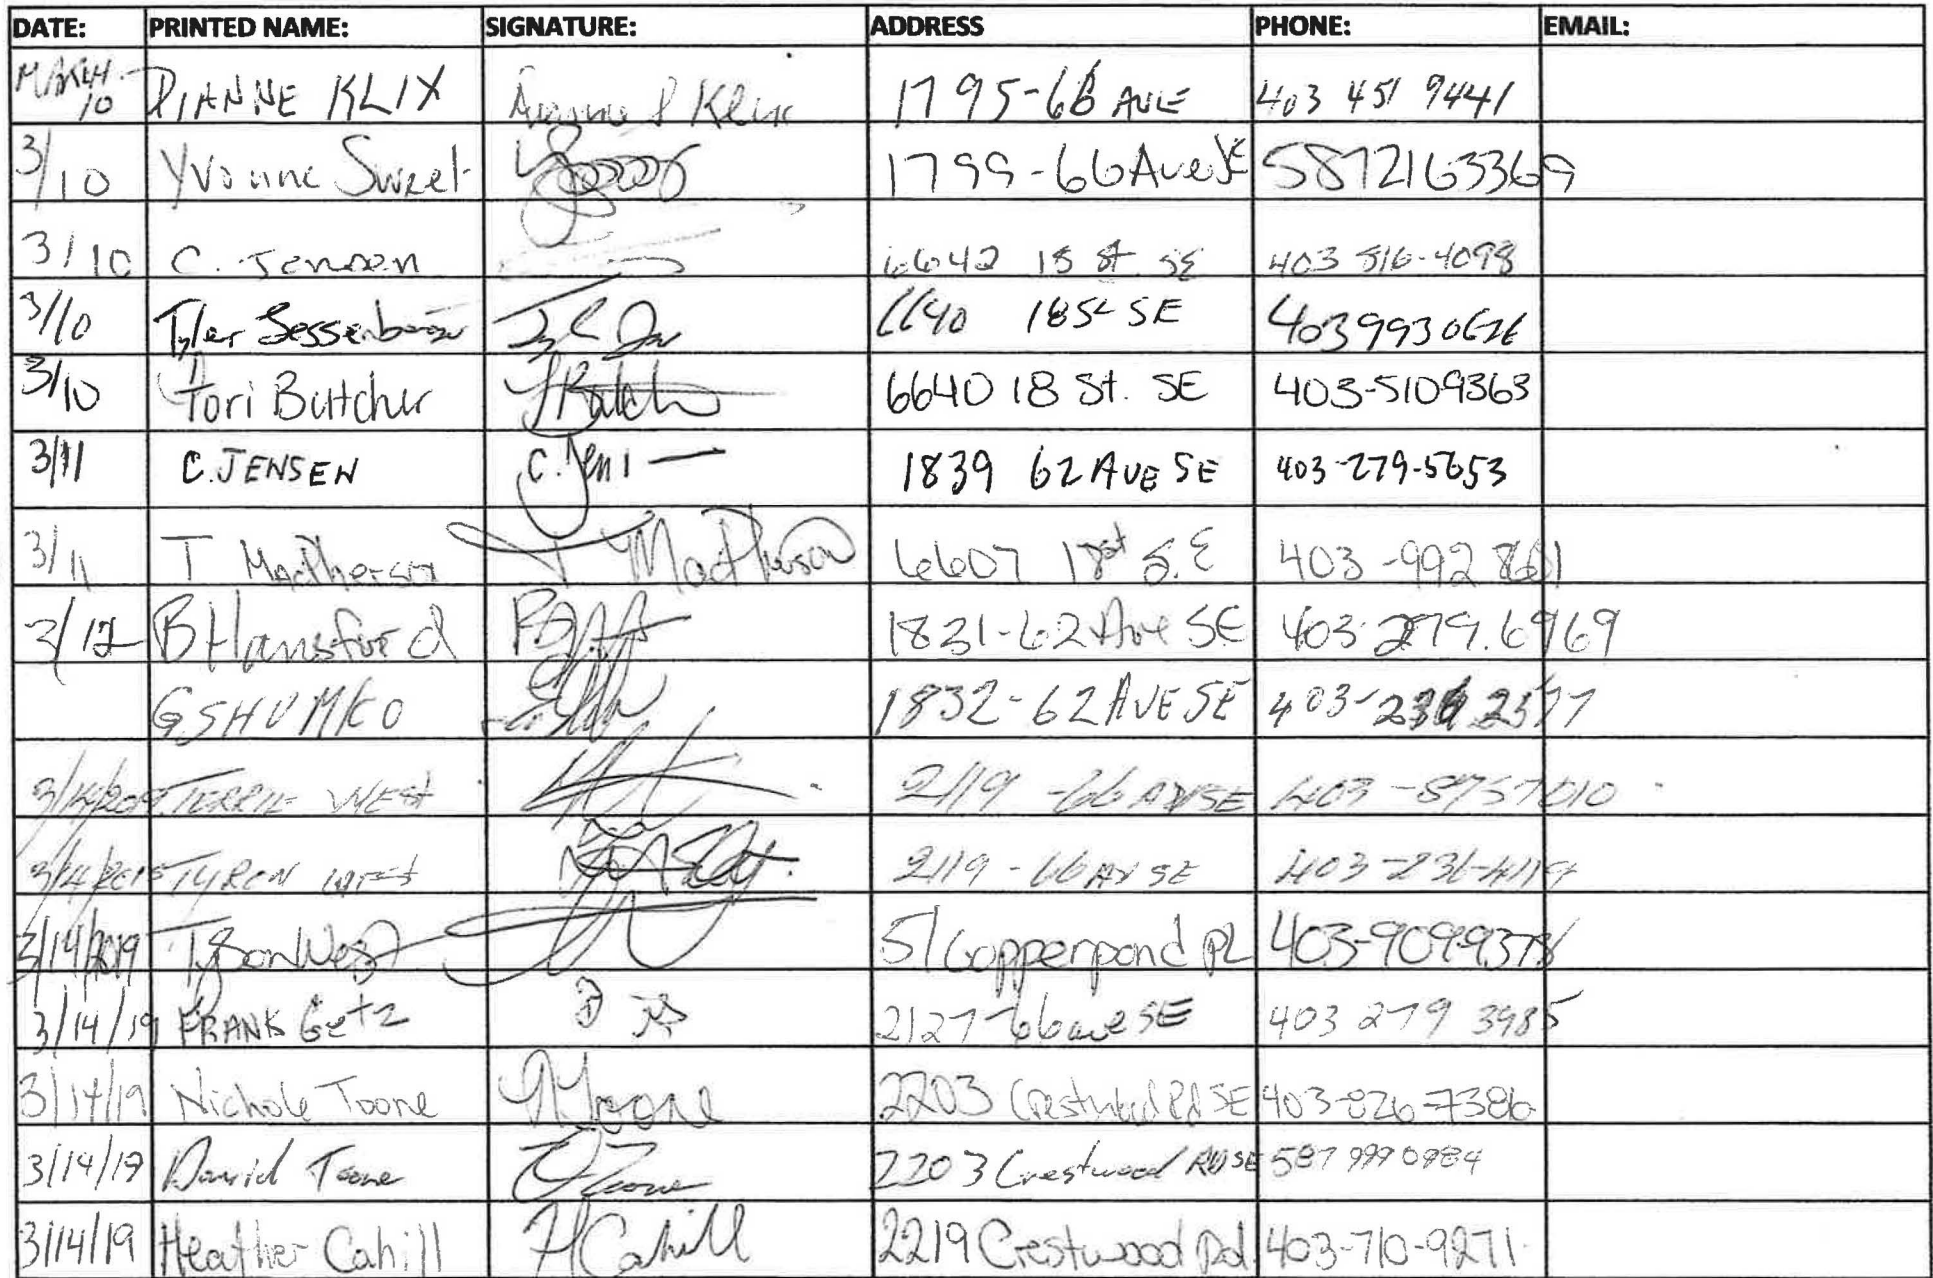 DATE: PRINTED NAME: SIGNATURE: ADDRESS PHONE: EMAIL:
MARCH 10 DIANNE KLIX Dianne L Klix 1795-66 AVE 403 451 9441
3/10 Yvonne Sweet 1799-66 Ave SE 5872163369
3/10 C. Jensen 6642 18 St SE 403 816-4098
3/10 Tyler 6640 18 St SE 403 993 0626
3/10 Tori Buttcher TButtch 6640 18 St. SE 403-5109363
3/11 C. JENSEN C. Jen 1839 62 AVE SE 403-279-5653
3/11 T MacPherson T MacPherson 6607 18st S.E 403-992 8661
3/12 B Hansford 1831-62 Ave SE 403-279.6969
G SHUMKO 1832-62 AVE SE 403-236 2577
3/14/2019 TERRIE WEST 2119 -66 AV SE 403-875 7010
3/14/2019 TYRON WEST 2119-66 AV SE 403-236-4119
3/14/2019 Tyson West 51 Copperpond PL 403-909-9378
3/14/19 FRANK Getz 2127-66 ave SE 403 279 3985
3/14/19 Nichole Toone NToone 2203 Crestwood Rd SE 403-826-7386
3/14/19 David Toone DToone 2203 Crestwood RD SE 587 999 0984
3/14/19 Heather Cahill HCahill 2219 Crestwood Rd. 403-710-9271